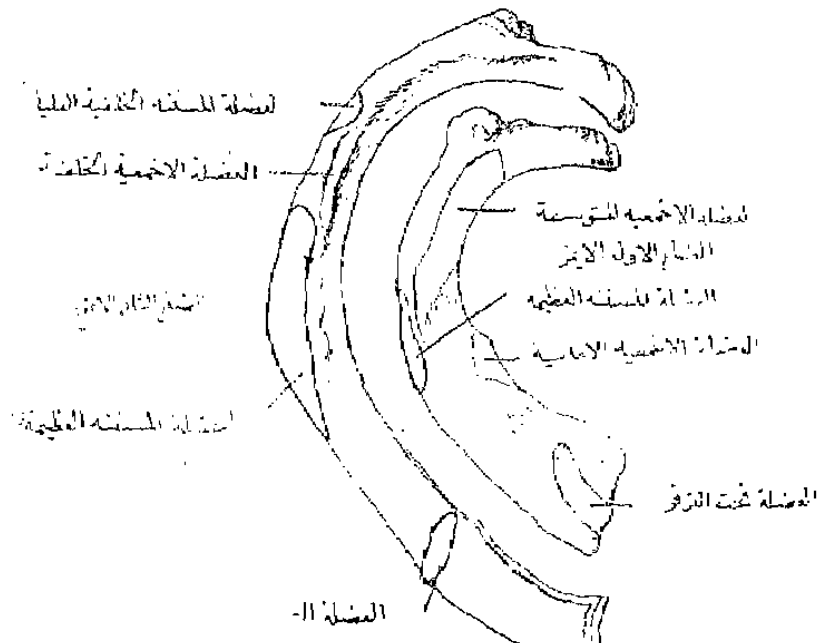 لعضلة المسننه الخلفية العليا
العضلة الاخمعية الخلفية
لعضلة الاخمعيه المتوسطة
الضلع الاول الايمن
العضلة المسننه العظيمه
الضلع الثاني الايمن
العضلة الاخمعيه الامامية
العضلة المسننه العظيمة
العضلة تحت الترقو
العضلة ال-